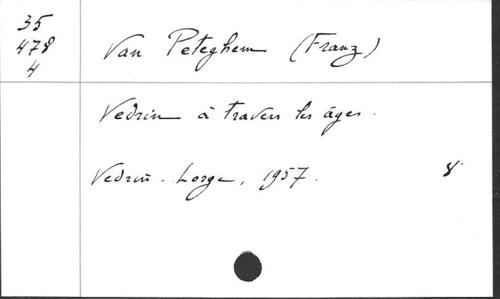 35
478
4
Van Peteghem (Franz)
Vedrin à travers les âges.
Vedrin. Lorge, 1957. 8°